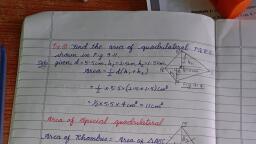 Ex 10 Find the area of quadrilateral PQRS
shown in Fig 9.11.
Sol: given, d = 5.5cm, h₁ = 2.5cm h₂ = 1.5cm
Area = ½ d(h₁ + h₂)
= ½ × 5.5 × (2.5 + 1.5) cm²
= ½ × 5.5 × 4 cm² = 11cm²
Area of Special quadrilateral
Area of Rhombus = Area of ΔADC